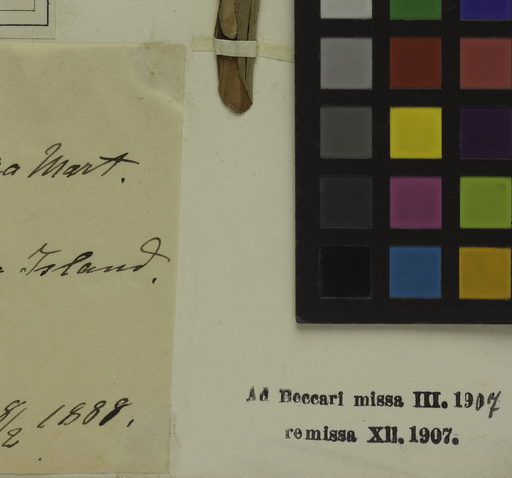 a Mart.
Island.
8/2 1888.
Ad Beccari missa III. 1907
remissa XII. 1907.